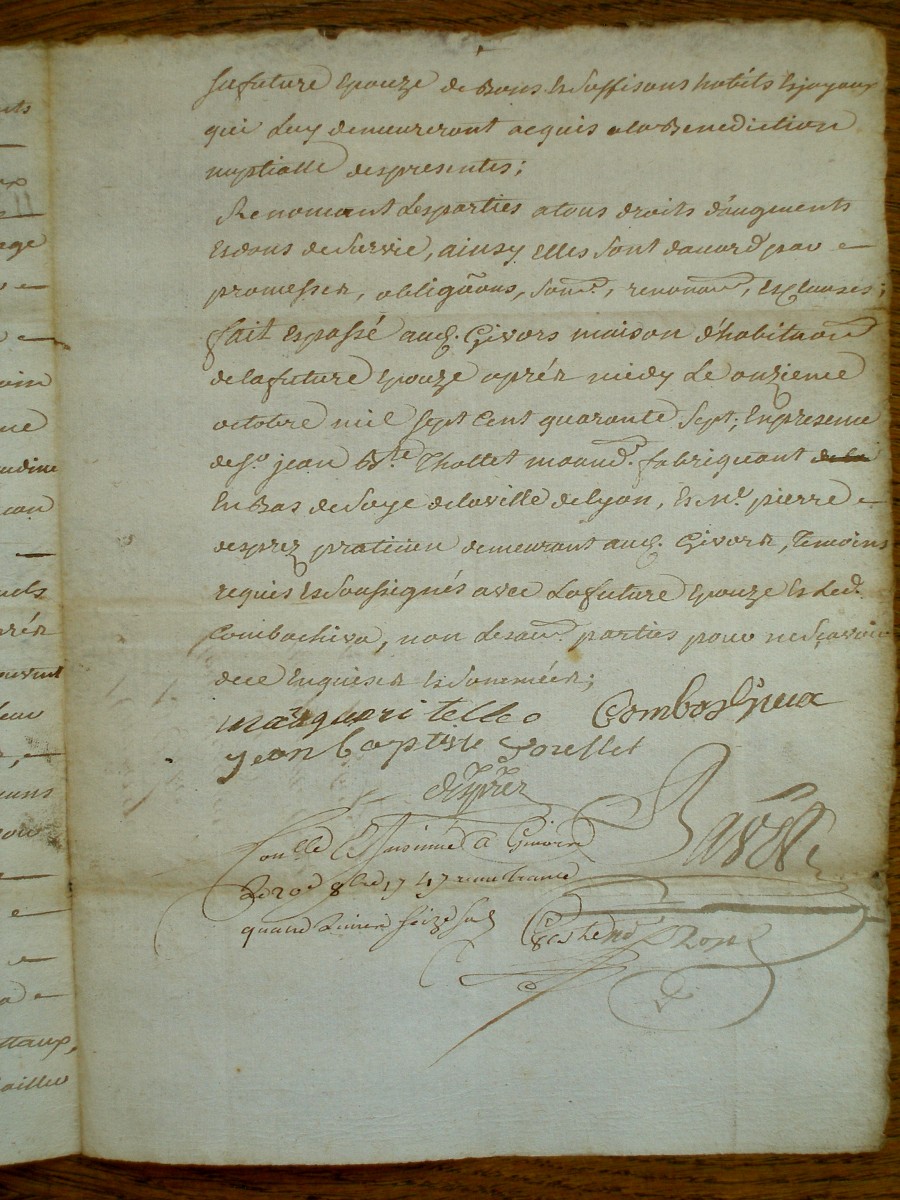 sa future Epouze de Bons Et Suffisans habits Et joyaux
qui Luy demeureront acquis a la Benediction
nuptialle des presentes;
Renoncant Les parties a tous droits d'augments
Et dons de Survie, ainsy Elles Sont d'accord par
promesses, obligãons, Soum.s, renonc.ns, Et Clauses;
fait Et passé aud. Givors maison d'habitaon
de la future Epouze aprés midy Le onzieme
octobre mil Sept Cent quarante Sept; En presence
de S.r jean B.te Thollet march.d fabriquant
En Bas de Soye de la ville de Lyon, Et M.e pierre
desprez praticien demeurant aud. Givors, Temoins
requis Et Soussignés avec La future Epouze Et Led.
Combachiva, non Les au.s parties pour ne Sçavoir
de ce Enquises Et Sommées;
margueri telle Combas
jean baptiste
desprez
Con.llé Et Insinué a Givors
Le 20e 8bre 1747 receu
quand Seize